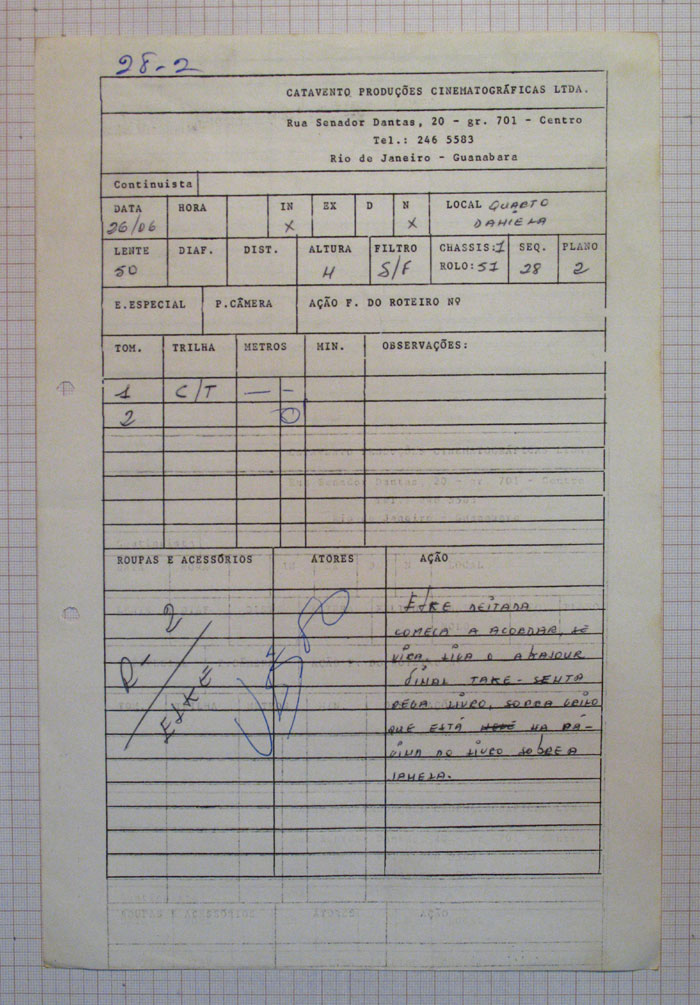 28-2
CATAVENTO PRODUÇÕES CINEMATOGRÁFICAS LTDA.
Rua Senador Dantas, 20 - gr. 701 - Centro
Tel.: 246 5583
Rio de Janeiro - Guanabara
Continuista
DATA HORA IN EX D N LOCAL QUARTO
26/06 X X DANIELA
LENTE DIAF. DIST. ALTURA FILTRO CHASSIS:1 SEQ. PLANO
50 4 S/F ROLO:51 28 2
E.ESPECIAL P.CÂMERA AÇÃO F. DO ROTEIRO Nº
TOM. TRILHA METROS MIN. OBSERVAÇÕES:
1 C/T — -
2
ROUPAS E ACESSÓRIOS ATORES AÇÃO
R- 2
EIKE
EIKE DEITADA
COMEÇA A ACORDAR, SE
VIRA, LIGA O ABAJOUR
FINAL TAKE - SENTA
PEGA LIVRO, SOPRA GRILO
QUE ESTÁ NA PÁ-
GINA DO LIVRO SOBRE A
JANELA.